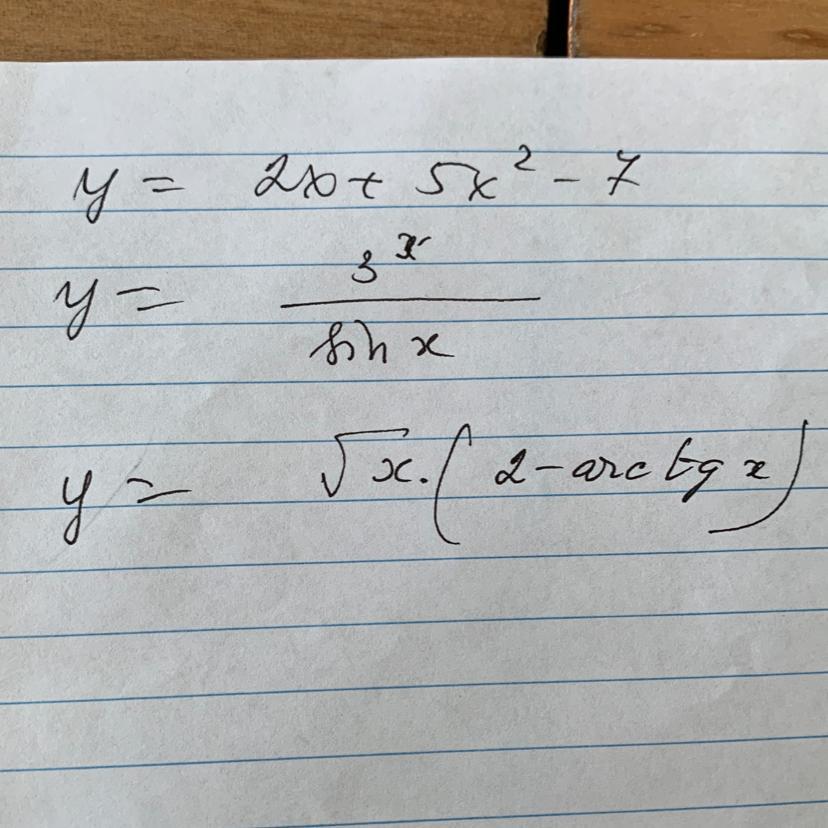 y = 2x + 5x² - 7
y = 3ˣ / sin x
y = √x · (2 - arctg x)